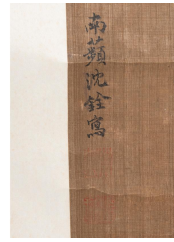 南蘋沈銓寫